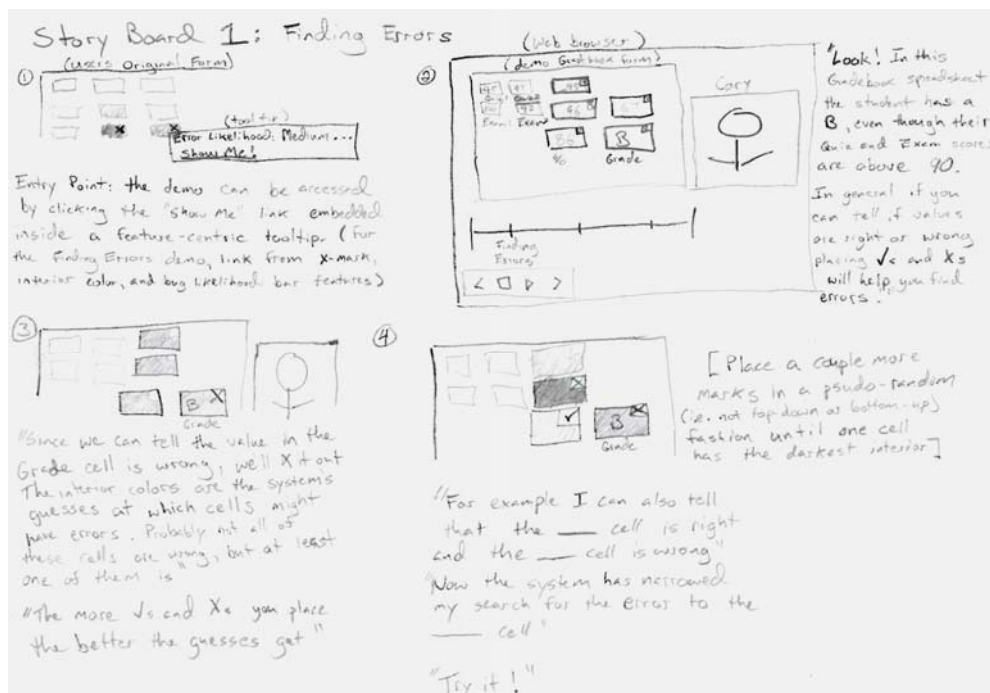 Story Board 1: Finding Errors
①
(users Original Form)
X
X
(tool tip)
Error Likelihood: Medium...
Show Me!
Entry Point: the demo can be accessed
by clicking the "Show Me" link embedded
inside a feature-centric tooltip. (For
the Finding Errors demo, link from X-mark,
interior color, and bug likelihood bar features)
②
(Web browser)
(demo Gradebook form)
B
%
Grade
Cory
Finding
Errors
< □ ▷ >
"Look! In this
Gradebook spreadsheet
the student has a
B, even though their
Quiz and Exam scores
are above 90.
In general if you
can tell if values
are right or wrong
placing √s and Xs
will help you find
errors."
③
B X
Grade
"Since we can tell the value in the
Grade cell is wrong, we'll X it out
The interior colors are the systems
guesses at which cells might
have errors. Probably not all of
these cells are wrong, but at least
one of them is"
"The more √s and Xs you place
the better the guesses get"
④
X
√
B X
Grade
[Place a couple more
marks in a psudo-random
(i.e. not top-down or bottom-up)
fashion until one cell
has the darkest interior]
"For example I can also tell
that the ___ cell is right
and the ___ cell is wrong"
"Now the system has narrowed
my search for the error to the
___ cell"
"Try it!"